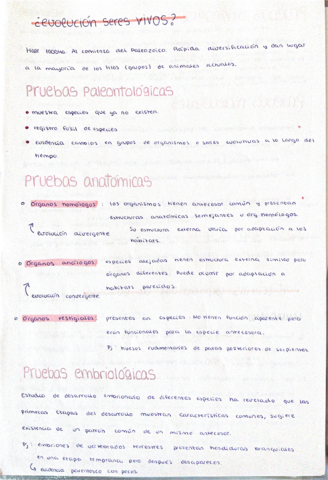 ¿EVOLUCIÓN SERES VIVOS?
Hace 1000Ma Al comienzo del Paleozoico. Rápida diversificación y dan lugar
a la mayoría de los filos (grupos) de animales actuales.
Pruebas Paleontológicas
• muestra especies que ya no existen
• registro fósil de especies
• evidencia cambios en grupos de organismos o series evolutivas a lo largo del
tiempo
Pruebas anatómicas
Organos homólogos: los organismos tienen antecesor común y presentan
estructuras anatómicas semejantes u org. homólogos
evolución divergente Su estructura externa varía por adaptación a los
hábitats.
Organos análogos: especies alejadas tienen estructura externa similar pero
órganos diferentes. Puede ocurrir por adaptación a
hábitats parecidos.
evolución convergente
Organos vestigiales: presentes en especies. No tienen función aparente pero
eran funcionales para la especie antecesora.
Pj: huesos rudimentarios de patas posteriores de serpientes
Pruebas embriológicas
Estudio de desarrollo embrionario de diferentes especies ha revelado que las
primeras etapas del desarrollo muestran características comunes, sugiere
existencia de un patrón común de un mismo antecesor.
Pj: embriones de vertebrados terrestres presentan hendiduras branquiales
en una etapa temprana pero después desaparecen
↳ evidencia parentesco con peces